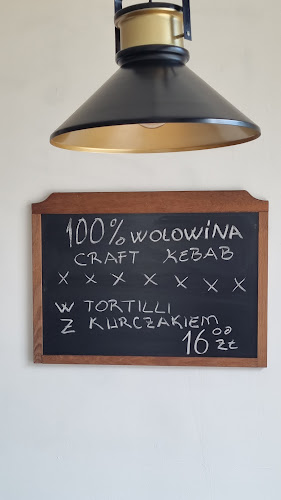 100% WOŁOWINA
CRAFT KEBAB
X X X X X X X
W TORTILLI
Z KURCZAKIEM
16 00 ZŁ